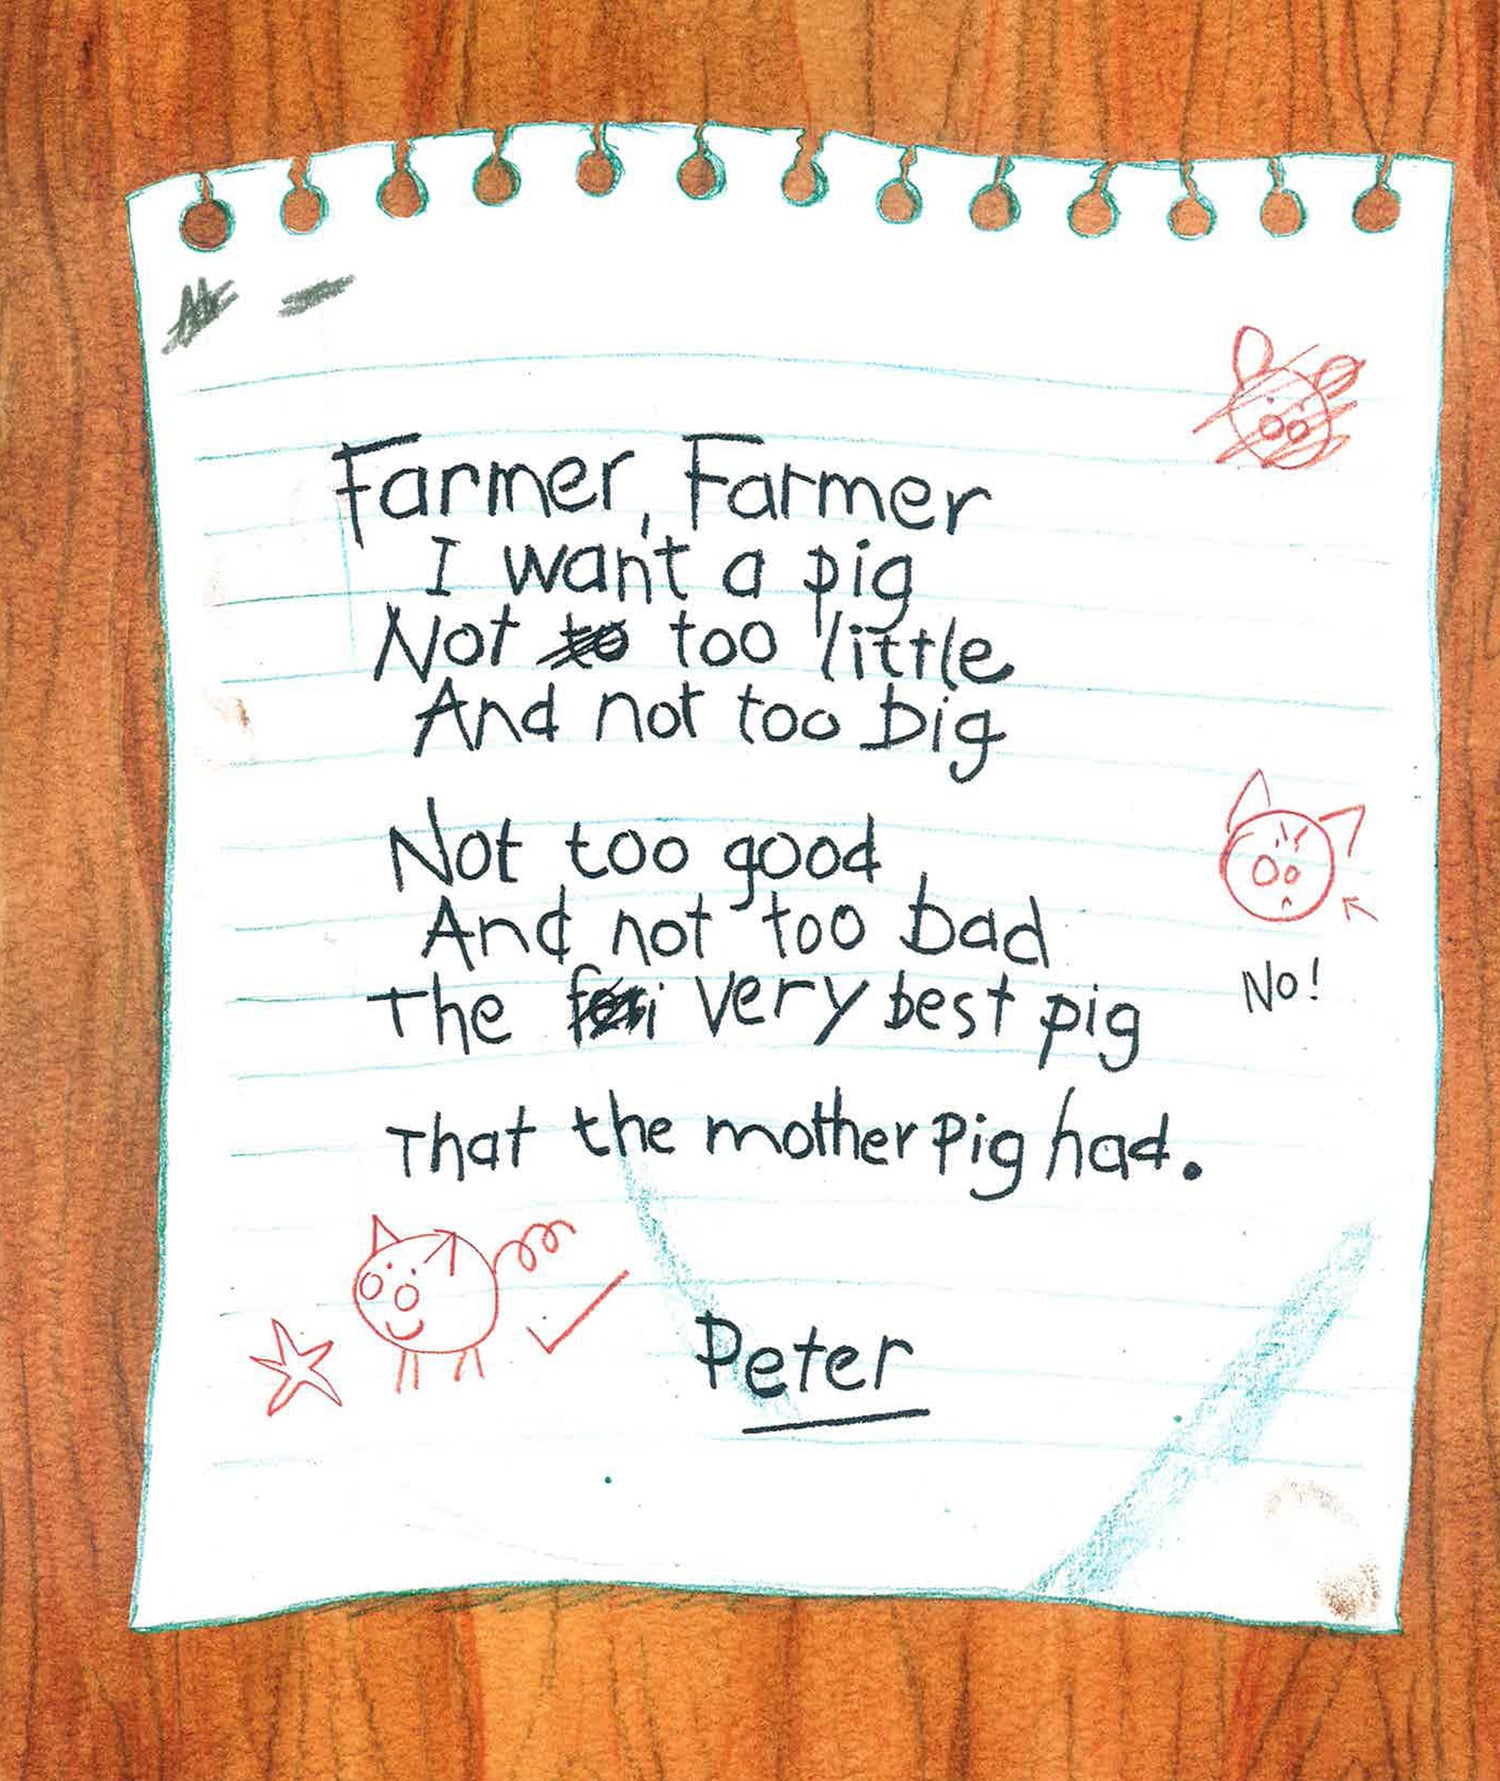 Farmer, Farmer
I want a pig
Not too little
And not too big
Not too good
And not too bad
The very best pig
No!
That the mother pig had.
Peter